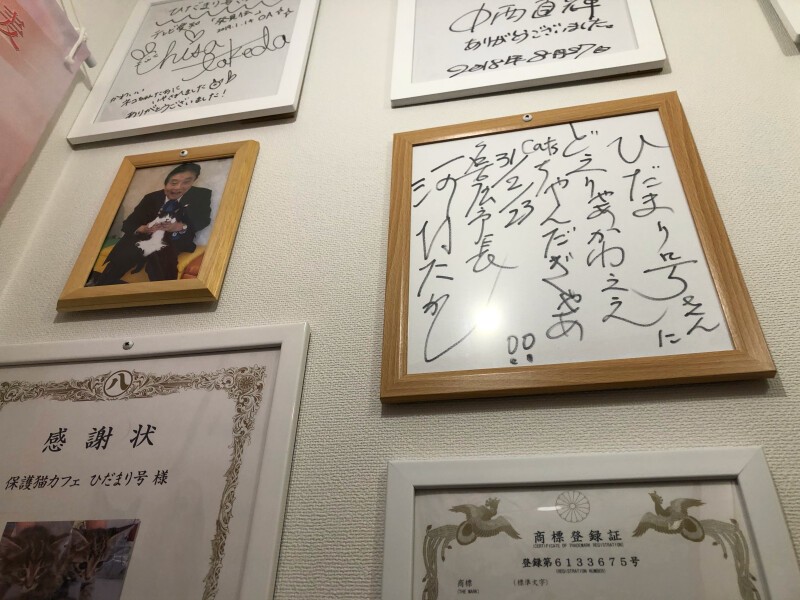 ひだまり号
テレビ愛知
2019.1.19 OA
chisa
takeda
かわいい
ありがとうございました!
ありがとうございました。
2018年8月27日
ひだまり号さんに
どえりゃあかわええ
Catsちゃんだぎゃあ
31/2/23
名古屋市長
河村たかし
八
感謝状
保護猫カフェ ひだまり号 様
商標登録証
(CERTIFICATE OF TRADEMARK REGISTRATION)
登録第6133675号
(REGISTRATION NUMBER)
商標
(THE MARK)
(標準文字)